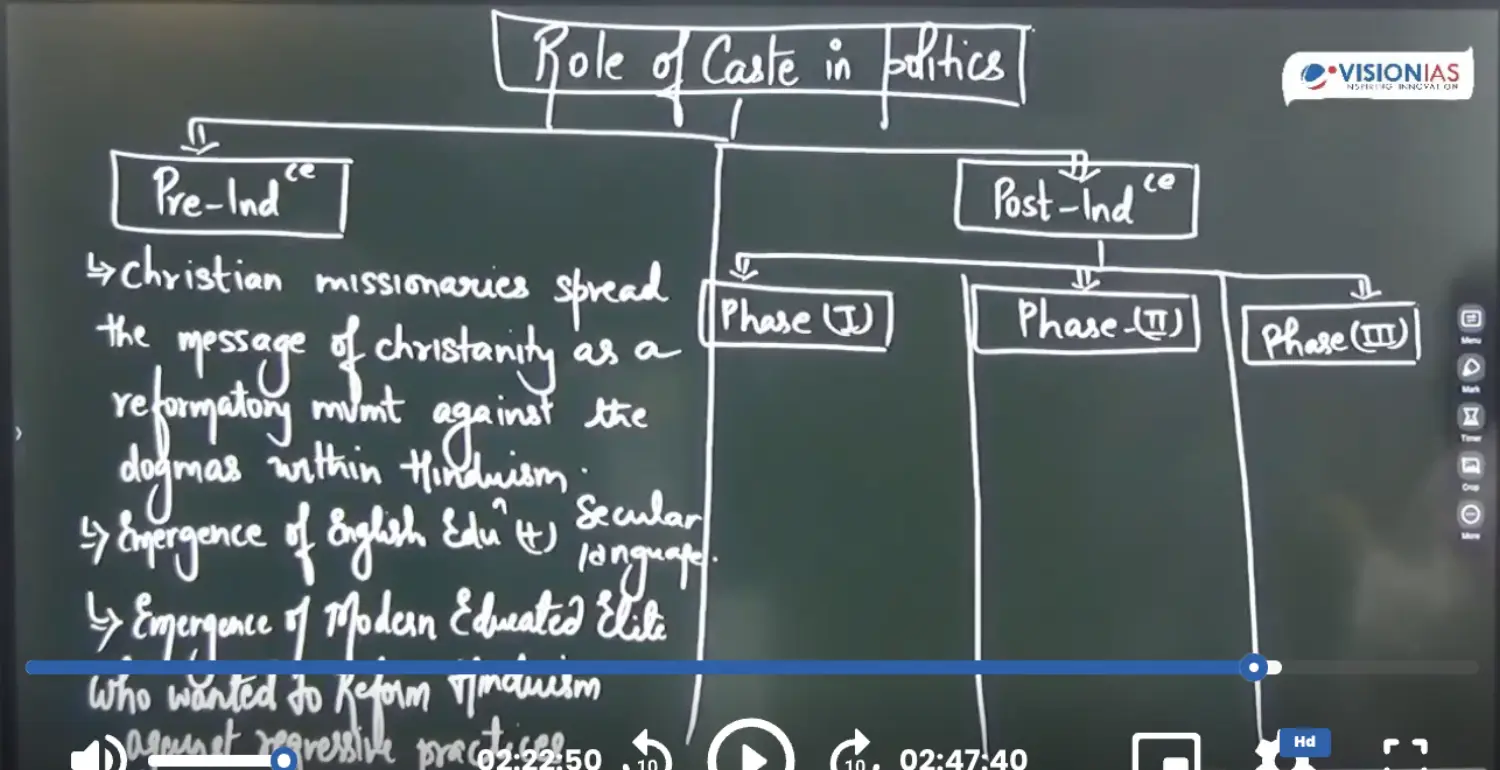 Role of Caste in politics
VISIONIAS
INSPIRING INNOVATION
Pre-Ind ce
Post-Ind ce
↳ Christian missionaries spread
the message of christanity as a
reformatory mvmt against the
dogmas within Hinduism.
↳ Emergence of English Edu^n (+) Secular
language.
↳ Emergence of Modern Educated Elite
who wanted to Reform Hinduism
against regressive practices
Phase (I)
Phase-(II)
Phase (III)
Menu
Mark
Timer
Crop
More
Hd
10
10
02:22:50
02:47:40